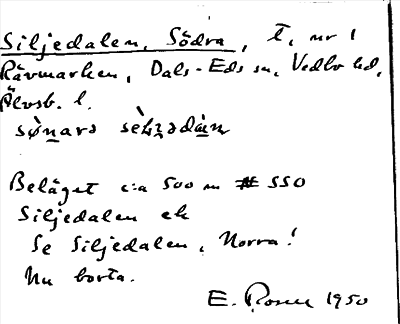 Siljedalen, Södra, t, nr 1
Rävmarken, Dals-Eds sn, Vedbo hd,
Älvsb. l.
Beläget c:a 500 m # SSO
Siljedalen ek
Se Siljedalen, Norra!
Nu borta.
E. Rosen 1950